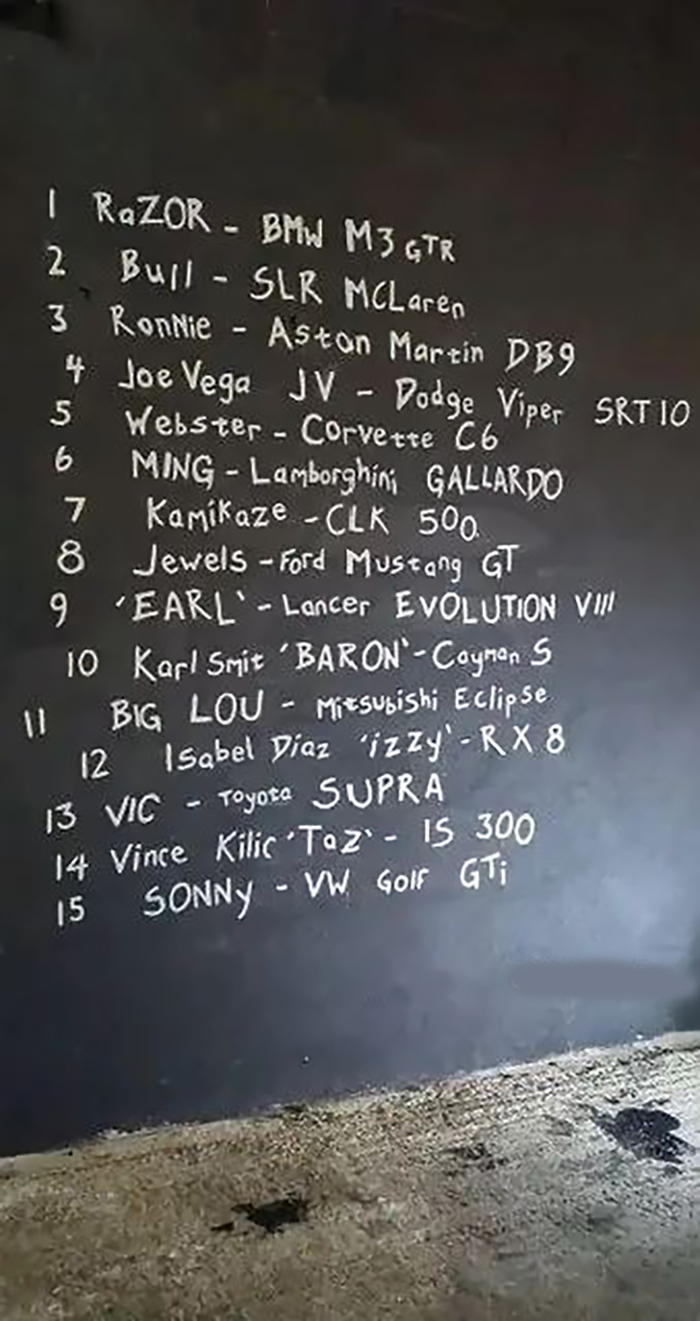 1 RaZOR - BMW M3 GTR
2 Bull - SLR McLaren
3 RonNie - Aston Martin DB9
4 Joe Vega JV - Dodge Viper SRT10
5 Webster - Corvette C6
6 MING - Lamborghini GALLARDO
7 Kamikaze - CLK 500
8 Jewels - Ford Mustang GT
9 'EARL' - Lancer EVOLUTION VIII
10 Karl Smit 'BARON' - Cayman S
11 BIG LOU - Mitsubishi Eclipse
12 Isabel Díaz 'izzy' - RX8
13 VIC - Toyota SUPRA
14 Vince Kilic 'Taz' - IS 300
15 SONNy - VW Golf GTi